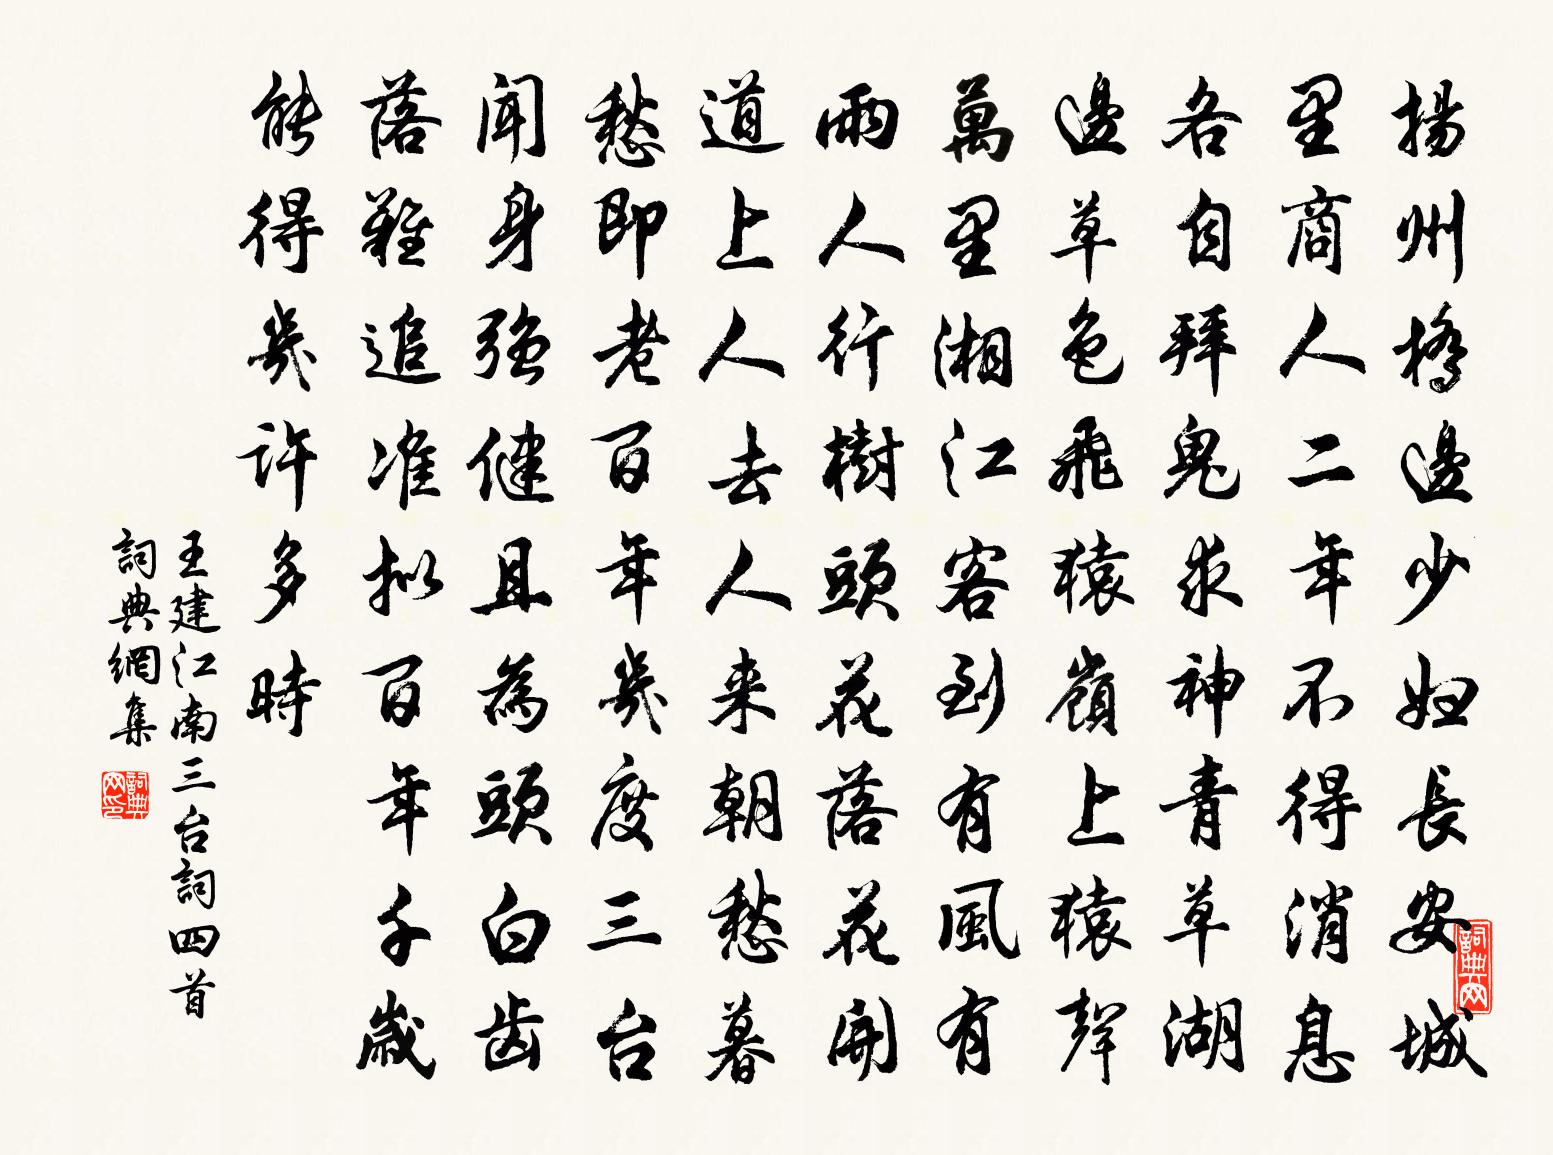 揚州橋邊少婦長安城
里商人二年不得消息
各自拜鬼求神青草湖
邊草色飛猿嶺上猿聲
萬里湘江客到有風有
雨人行樹頭花落花開
道上人去人来朝愁暮
愁即老百年幾度三台
聞身強健且為頭白齿
落難追准拟百年千歲
能得幾許多時
王建江南三台詞四首
詞典網集
詞典网
詞典网印